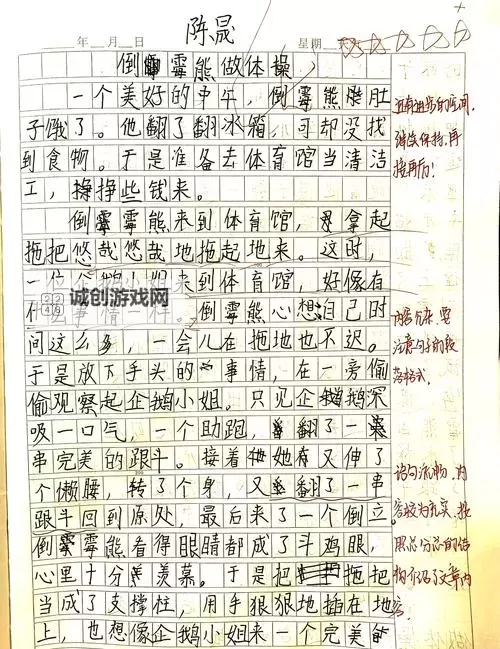 陈晟
年 月 日 星期
倒霉熊做体操
一个美好的中午,倒霉熊肚
子饿了。他翻了翻冰箱,可却没找
到食物。于是准备去体育馆当清洁
工,挣挣些钱来。
倒霉熊来到体育馆,拿起
拖把悠哉悠哉地拖起地来。这时,
一位企鹅小姐来到体育馆,好像有
什 事情一样。倒霉熊心想自己时
间这么多,一会儿在拖地也不迟。
于是放下手头的事情,在一旁偷
偷观察起企鹅小姐。只见企鹅深
吸一口气,一个助跑,翻了一
串完美的跟斗。接着她又伸了
个懒腰,转了个身,又翻了一串
跟斗回到原处,最后来了一个倒立。
倒霉熊看得眼睛都成了斗鸡眼,
心里十分羡慕。于是把拖把
当成了支撑柱,用手狠狠地插在地
上,也想像企鹅小姐来一个完美
诚创游戏网
还有进步的空间
继续保持,再
接再厉!
内容尤佳,要
注意句子的段
落格式
语句流畅,内
容较为充实,按
照总分总的结
构介绍了文章内
容